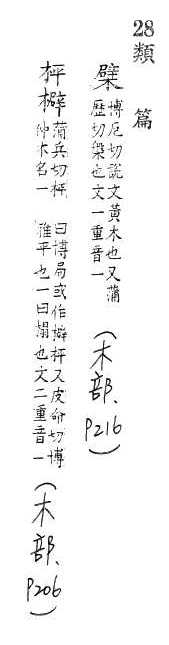 28類篇
檗
博厄切說文黃木也又蒲
歷切檗也文一重音一
(木部、P216)
枰檘
蒲兵切枰
仲木名一
曰博局或作檘枰又皮命切博
雅平也一曰榻也文二重音一
(木部、P206)